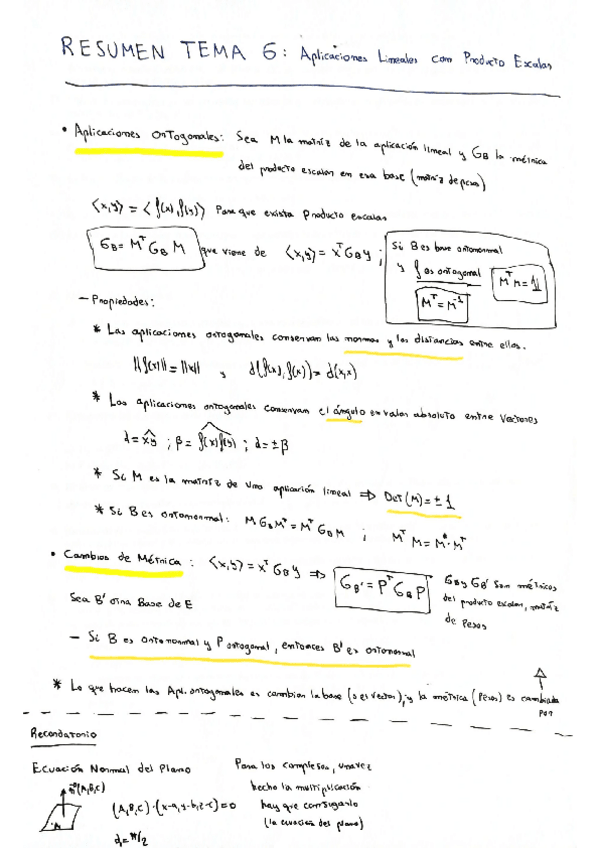 RESUMEN TEMA 6: Aplicaciones Lineales con Producto Escalar
• Aplicaciones Ortogonales: Sea M la matriz de la aplicación lineal y G_B la métrica
del producto escalar en esa base (matriz de pesos)
<x,y> = <f(x),f(y)> Para que exista producto escalar
G_B = M^T G_B M que viene de <x,y> = x^T G_B y ;
Si B es base ortonormal
y f es ortogonal
M^T M = 1
M^T = M^-1
- Propiedades:
* Las aplicaciones ortogonales conservan las normas y las distancias entre ellos.
||f(x)|| = ||x|| y d(f(x), f(x)) = d(x,x)
* Las aplicaciones ortogonales conservan el ángulo en valor absoluto entre vectores
α = xy ; β = f(x)f(y) ; α = ± β
* Si M es la matriz de una aplicación lineal ⇒ Det(M) = ± 1
* Si B es ortonormal: M G_B M^T = M^T G_B M ; M^T M = M · M^T
• Cambios de Métrica: <x,y> = x^T G_B y ⇒ G_B' = P^T G_B P
G_B y G_B' son métricas
del producto escalar, matriz
de pesos
Sea B' otra Base de E
- Si B es ortonormal y P ortogonal, entonces B' es ortonormal
* Lo que hacen las Apl. ortogonales es cambiar la base (s es vector), y la métrica (Pesos) es cambiada
por
Recordatorio
Ecuación Normal del Plano
(A,B,C)
(A,B,C) · (x-a, y-b, z-c) = 0
α = π/2
Para los complejos, una vez
hecho la multiplicación
hay que conjugarlo
(la ecuación del plano)